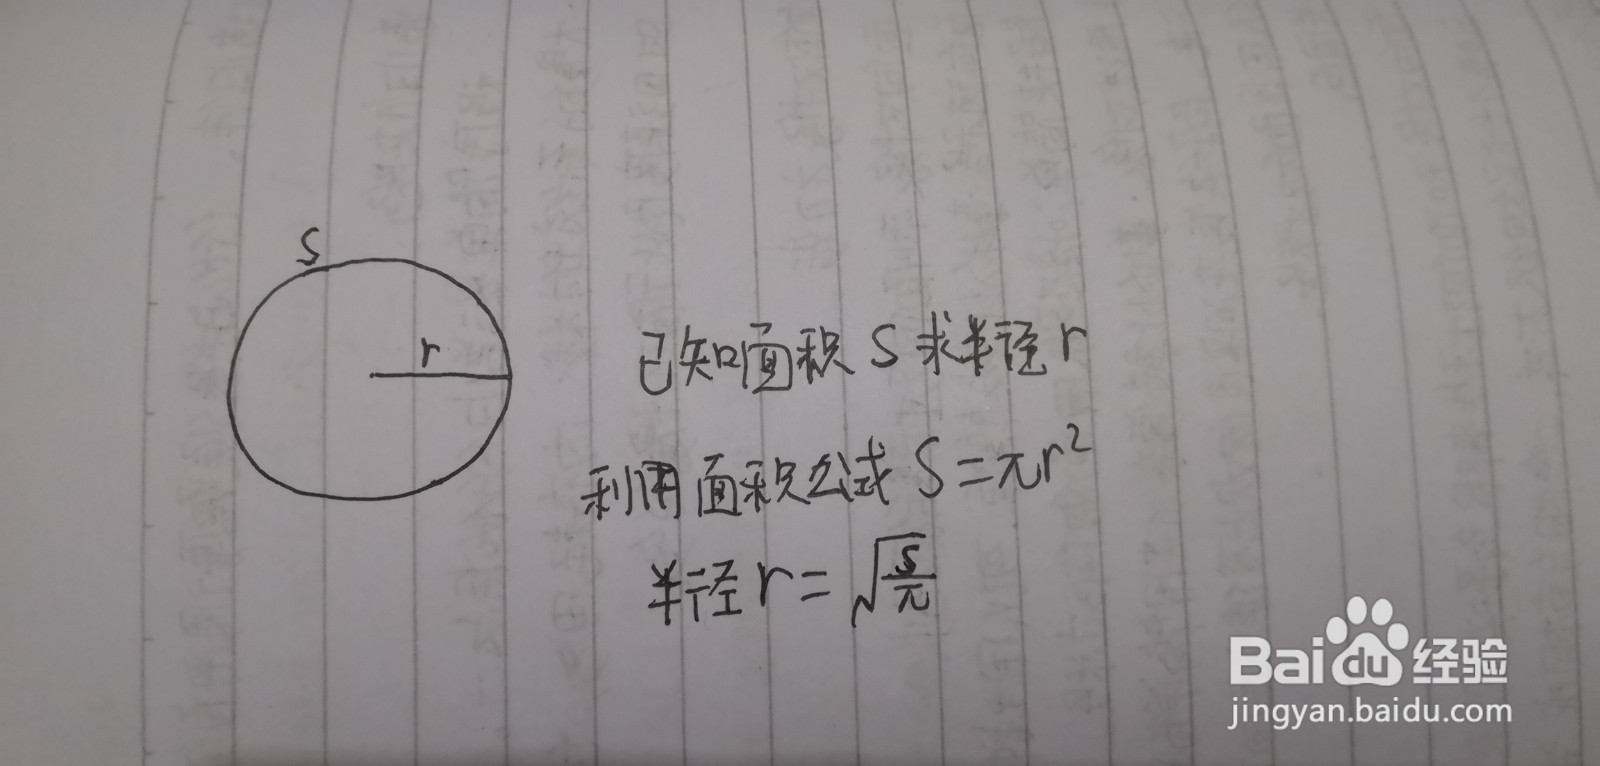 S
r
已知面积 S 求半径 r
利用面积公式 S=πr²
半径 r=√(S/π)
Baidu 经验
jingyan.baidu.com